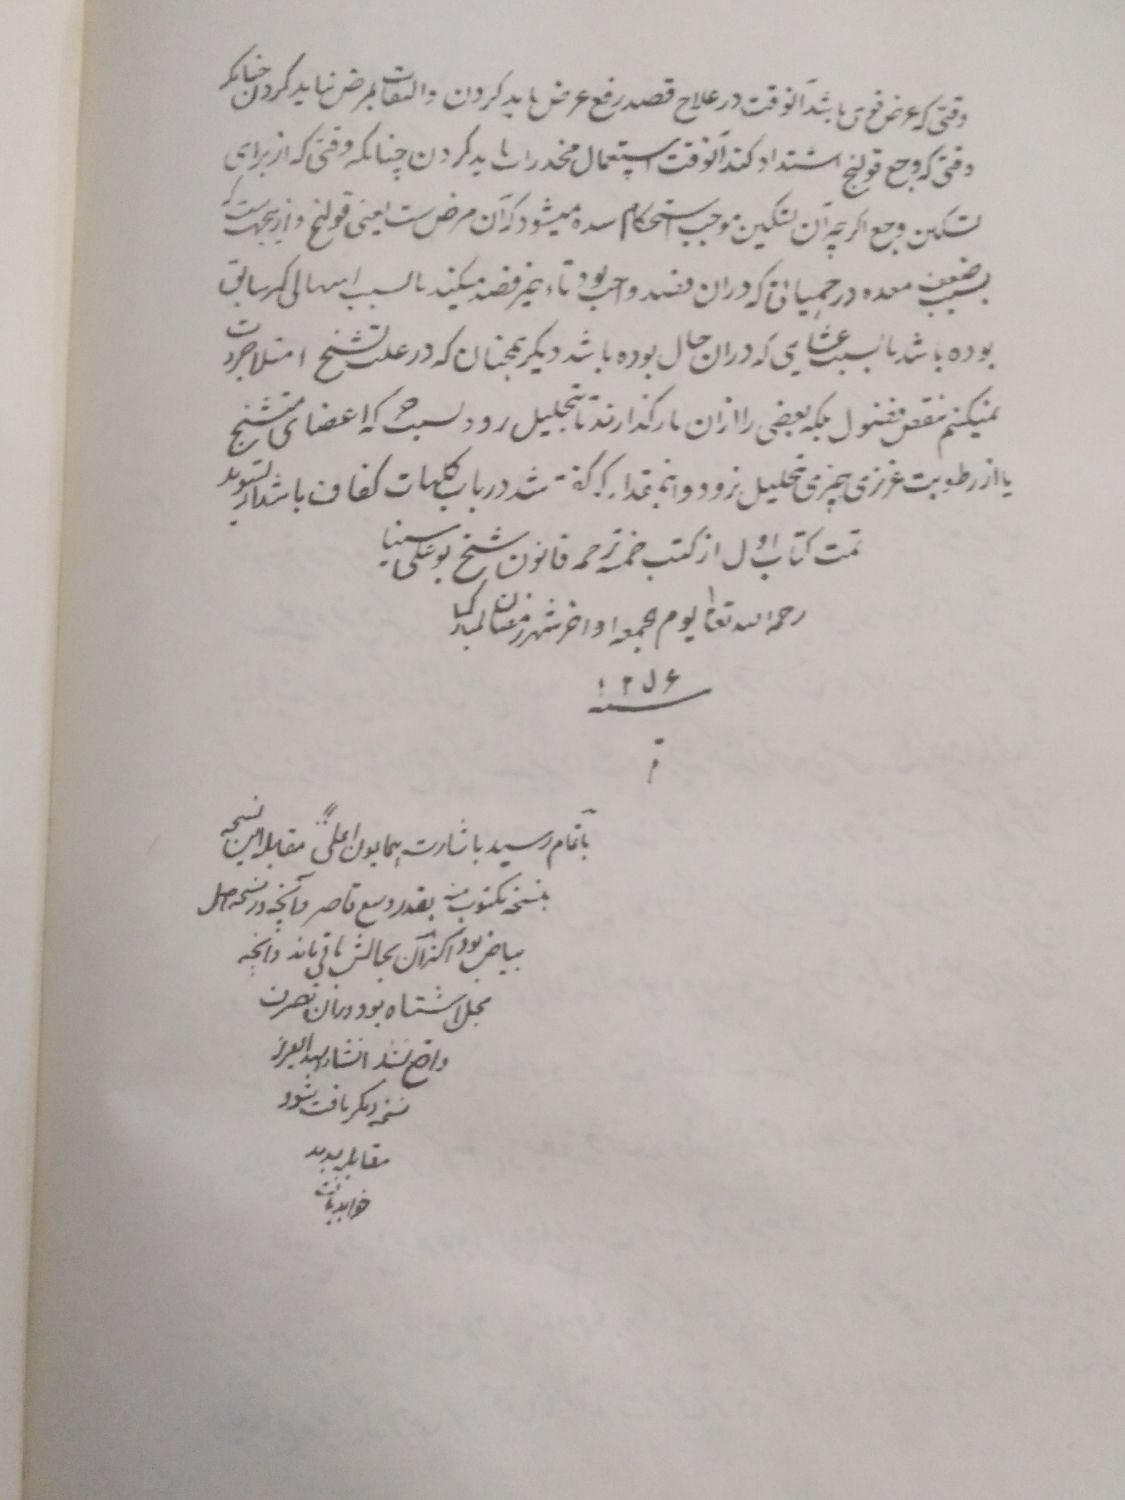 وقتی که عرض قوی باشد آنوقت در علاج قصد رفع عرض باید کردن و التفات بمرض نباید کردن چنانکه
وقتی که وجع قولنج اشتداد کند آنوقت استعمال مخدرات باید کردن چنانکه وقتی که از برای
تسکین وجع اگرچه آن تسکین موجب استحکام سده میشود که آن مرض ست یعنی قولنج و از نجهت ست که
بسبب ضعف معده در حمیاتی که دران فصد واجب بود تاءخیر فصد میکند یا بسبب اسهالی که سابق
بوده باشد یا بسبب غثیانی که دران حال بوده باشد دیگر همچنان که در علت تشنج امتلا جرءت
نمیکنم بنقص فضول بلکه بعضی را ازان باز گذارند تا بتحلیل رود بسبب که اعضای متشنج
یا از رطوبت غریزی چیزی بتحلیل نرود و اینمقدار که گفته شد در باب کلیات کفاف باشد
تمت کتاب اول از کتب خمسه ترجمه قانون شیخ بوعلی سینا
رحمه الله تعالی یوم الجمعه اواخر شهر رمضان المبارک
سنه ۱۲۵۶
م
باتمام رسید باشارت همایون اعلی مقابله این نسخه
بنسخه مکتوب منه بقدر وسع قاصر و آنچه در نسخه اصل
بیاض بود اکثر آن بحالش باقی ماند و آنچه
محل اشتباه بود دران تصرف
واقع نشد انشاء الله العزیز
نسخه دیگر یافت شود
مقابله پدید
خواهد یافت